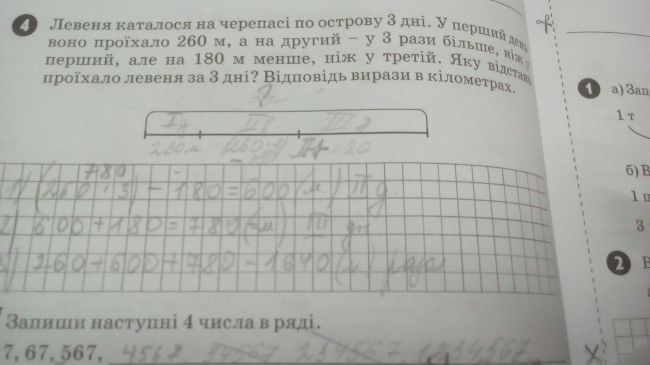 4 Левеня каталося на черепасі по острову 3 дні. У перший день
воно проїхало 260 м, а на другий – у 3 рази більше, ніж у
перший, але на 180 м менше, ніж у третій. Яку відстань
проїхало левеня за 3 дні? Відповідь вирази в кілометрах.
?
І д ІІ д ІІІ д
260 м (260·3) ІІ+180
780
1) (260·3)-180=600(м) ІІ д
2) 600+180=780(м) ІІІ д
3) 260+600+780=1640(м)
Запиши наступні 4 числа в ряді.
7, 67, 567, 4567 34567 234567 1234567
1 а) Зап
1 т
б) В
1
3
2 В